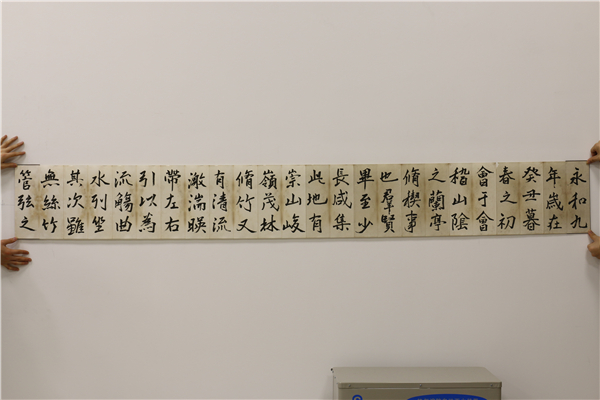 永和九
年歲在
癸丑暮
春之初
會于會
稽山陰
之蘭亭
脩禊事
也羣賢
畢至少
長咸集
此地有
崇山峻
嶺茂林
脩竹又
有清流
激湍暎
帶左右
引以為
流觴曲
水列坐
其次雖
無絲竹
管弦之